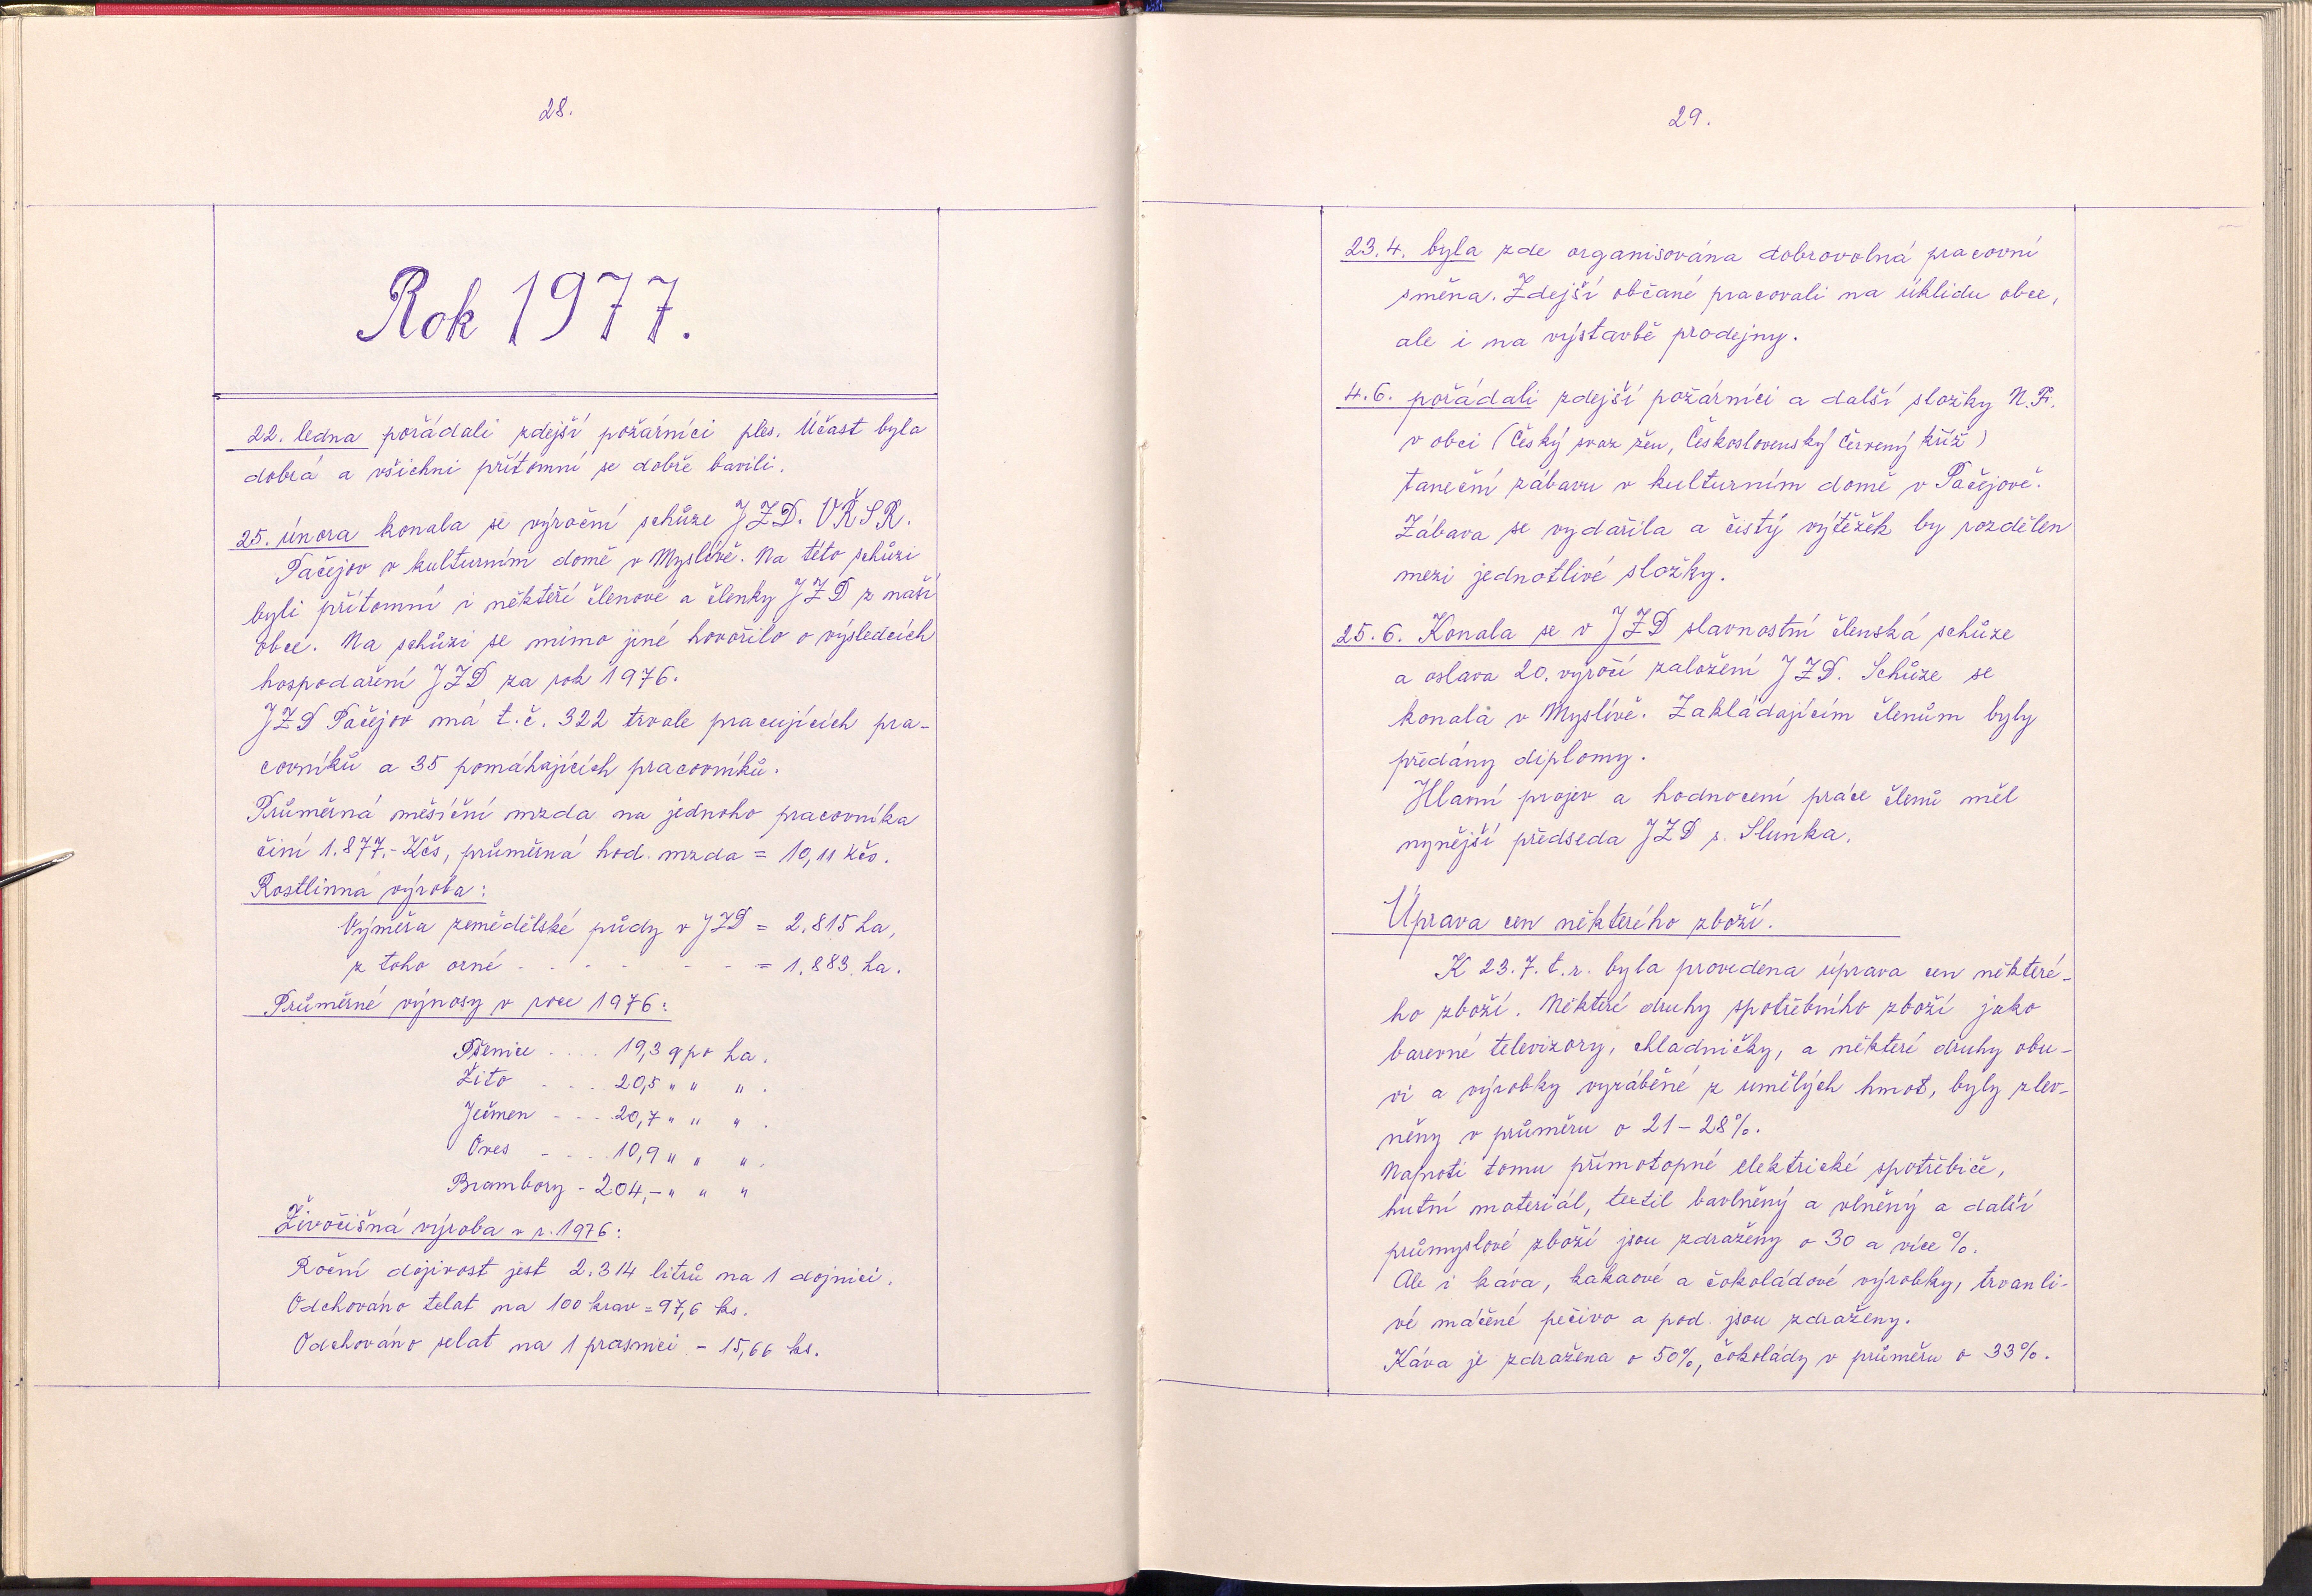 28.
Rok 1977.
22. ledna pořádali zdejší požárníci ples. Účast byla
dobrá a všichni přítomní se dobře bavili.
25. února konala se výroční schůze JZD. VŘSR.
Pačejov v kulturním domě v Myslívě. Na této schůzi
byli přítomní i někteří členové a členky JZD z naší
obce. Na schůzi se mimo jiné hovořilo o výsledcích
hospodaření JZD za rok 1976.
JZD Pačejov má t.č. 322 trvale pracujících pra-
covníků a 35 pomáhajících pracovníků.
Průměrná měsíční mzda na jednoho pracovníka
činí 1.877.- Kčs, průměrná hod. mzda = 10,11 Kčs.
Rostlinná výroba:
Výměra zemědělské půdy v JZD = 2.815 ha,
z toho orné - - - - - - = 1.883. ha.
Průměrné výnosy v roce 1976:
Pšenice .... 19,3 q po ha.
Žito - - - . 20,5 " " " .
Ječmen - - - 20,7 " " " .
Oves - - . . 10,9 " " " .
Brambory - 204,- " " "
Živočišná výroba v r. 1976:
Roční dojivost jest 2.314 litrů na 1 dojnici.
Odchováno telat na 100 krav = 97,6 ks.
Odchováno selat na 1 prasnici - 15,66 ks.
29.
23.4. byla zde organisována dobrovolná pracovní
směna. Zdejší občané pracovali na úklidu obce,
ale i na výstavbě prodejny.
4.6. pořádali zdejší požárníci a další složky N.Fr.
v obci (Český svaz žen, Československý červený kříž)
taneční zábavu v kulturním domě v Pačejově.
Zábava se vydařila a čistý výtěžek by rozdělen
mezi jednotlivé složky.
25.6. Konala se v JZD slavnostní členská schůze
a oslava 20. výročí založení JZD. Schůze se
konala v Myslívě. Zakládajícím členům byly
předány diplomy.
Hlavní projev a hodnocení práce členů měl
nynější předseda JZD s. Slunka.
Úprava cen některého zboží.
K 23.7. t.r. byla provedena úprava cen některé-
ho zboží. Některé druhy spotřebního zboží jako
barevné televizory, chladničky, a některé druhy obu-
vi a výrobky vyráběné z umělých hmot, byly zlev-
něny v průměru o 21-28%.
Naproti tomu přímotopné elektrické spotřebiče,
hutní materiál, textil bavlněný a vlněný a další
průmyslové zboží jsou zdraženy o 30 a více %.
Ale i káva, kakaové a čokoládové výrobky, trvanli-
vé máčené pečivo a pod. jsou zdraženy.
Káva je zdražena o 50%, čokolády v průměru o 33%.